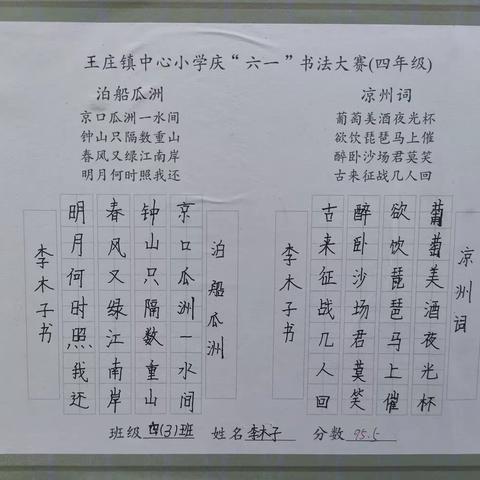 王庄镇中心小学庆“六一”书法大赛(四年级)
泊船瓜洲
京口瓜洲一水间
钟山只隔数重山
春风又绿江南岸
明月何时照我还
凉州词
葡萄美酒夜光杯
欲饮琵琶马上催
醉卧沙场君莫笑
古来征战几人回
泊船瓜洲
京口瓜洲一水间
钟山只隔数重山
春风又绿江南岸
明月何时照我还
李木子书
凉州词
葡萄美酒夜光杯
欲饮琵琶马上催
醉卧沙场君莫笑
古来征战几人回
李木子书
班级 四(3)班 姓名 李木子 分数 95.5